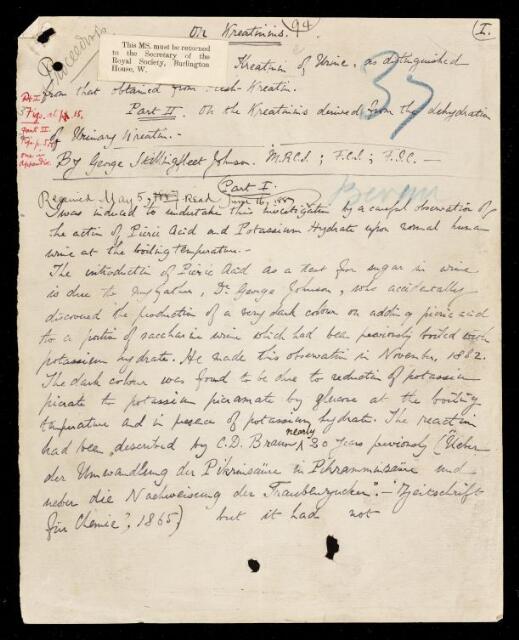 On Kreatinins.
94
I.
Proceedings
This MS. must be returned
to the Secretary of the
Royal Society, Burlington
House, W.
Kreatinin of Urine, as distinguished
from that obtained from flesh-Kreatin.
37
Part II. On the Kreatinins derived from the dehydration
of Urinary Kreatin.-
Pt I
Figs. at p. 15.
Part II
one in
appendix.
By George Stillingfleet Johnson. M.R.C.S.; F.C.S.; F.I.C. —
Part I.
Received May 5, Read June 16, 1887
I was induced to undertake this investigation by a careful observation of
the action of Picric Acid and Potassium Hydrate upon normal human
urine at the boiling temperature.-
The introduction of Picric Acid as a test for sugar in urine
is due to my father, Dr George Johnson, who accidentally
discovered the production of a very dark colour on adding picric acid
to a portion of saccharine urine which had been previously boiled with
potassium hydrate. He made this observation in November, 1882.
The dark colour was found to be due to reduction of potassium
picrate to potassium picramate by glucose at the boiling
temperature and in presence of potassium hydrate. The reaction
had been described by C.D. Braun nearly 20 years previously (Ueber
der Umwandlung der Pikrinsäure in Pikraminsäure und
ueber die Nachweisung der Traubenzucker".- "Zeitschrift
für Chemie", 1865) but it had not